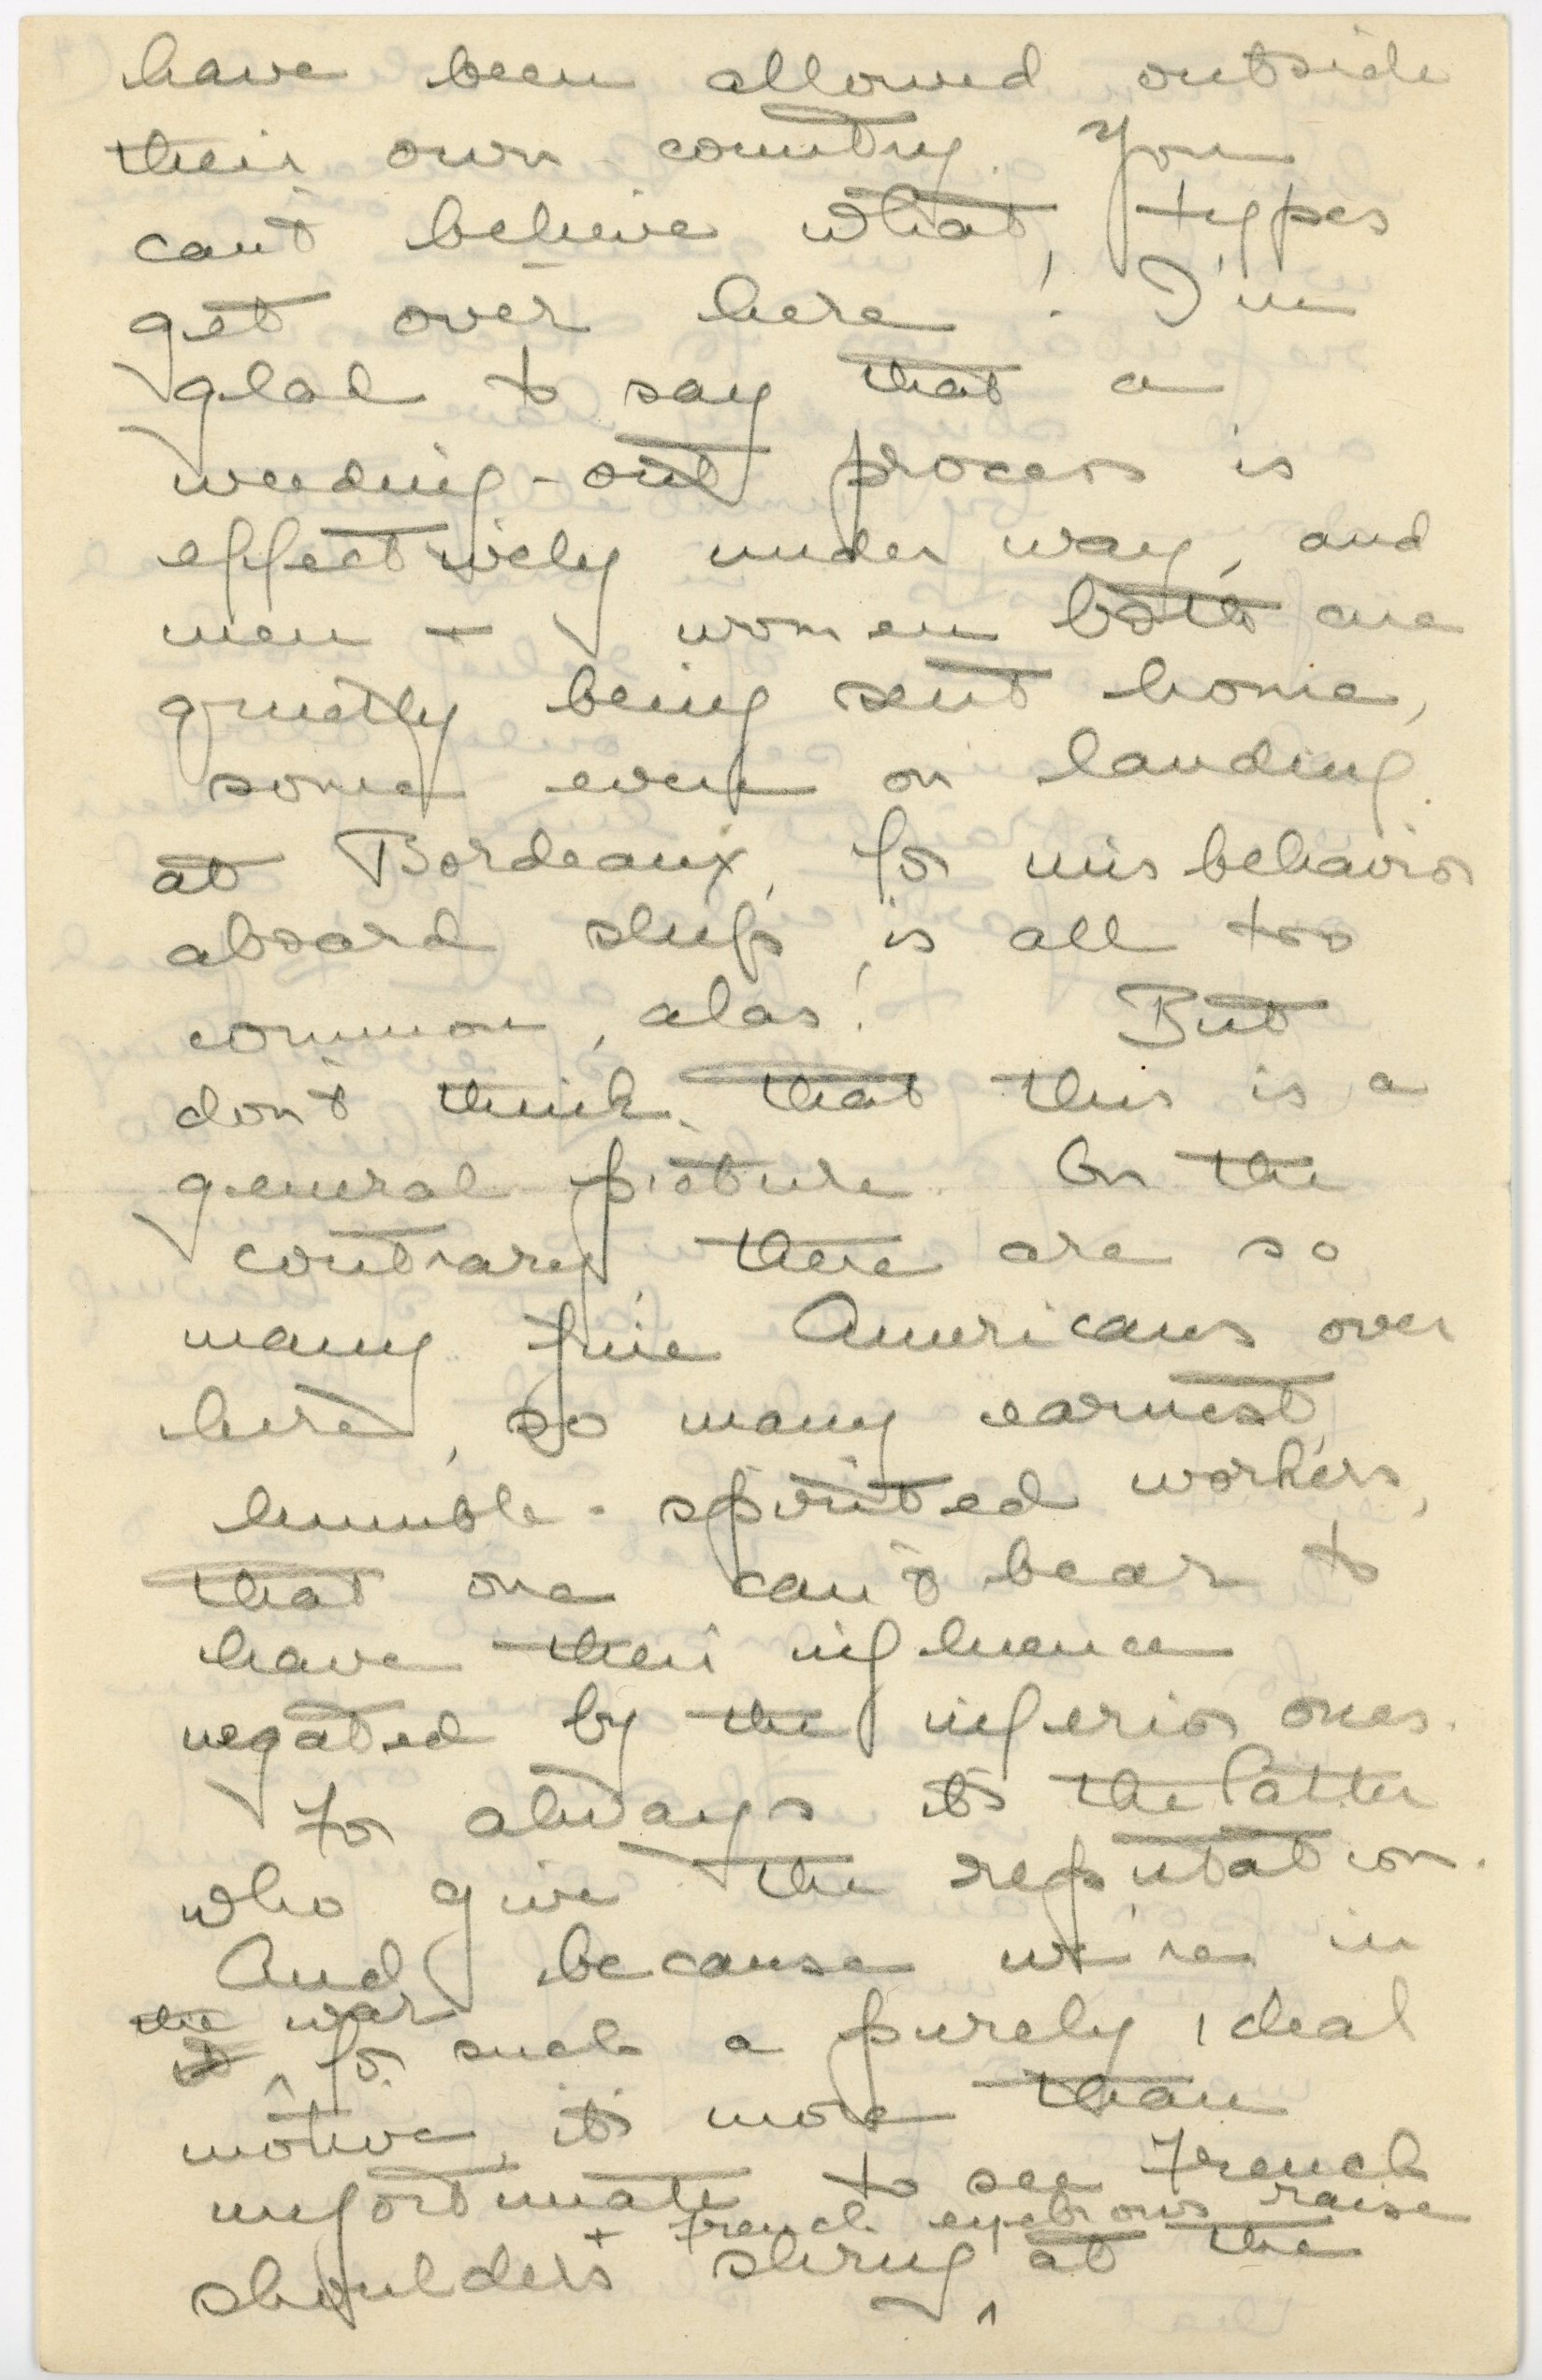 have been allowed outside
their own country. You
can't believe what types
get over here! I'm
glad to say that a
weeding-out process is
effectively under way, and
men + women both are
quietly being sent home,
some even on landing
at Bordeaux, for misbehavior
aboard ship is all too
common, alas! But
don't think that this is a
general picture. On the
contrary, there are so
many fine Americans over
here, so many earnest,
humble-spirited workers,
that one can't bear to
have their influence
negated by the inferior ones.
For always it's the latter
who give the reputation.
And because we're in
the war
it ^ for such a purely ideal
motive, it's more than
unfortunate to see French
+ French eyebrows raise
shoulders shrug ^ at the